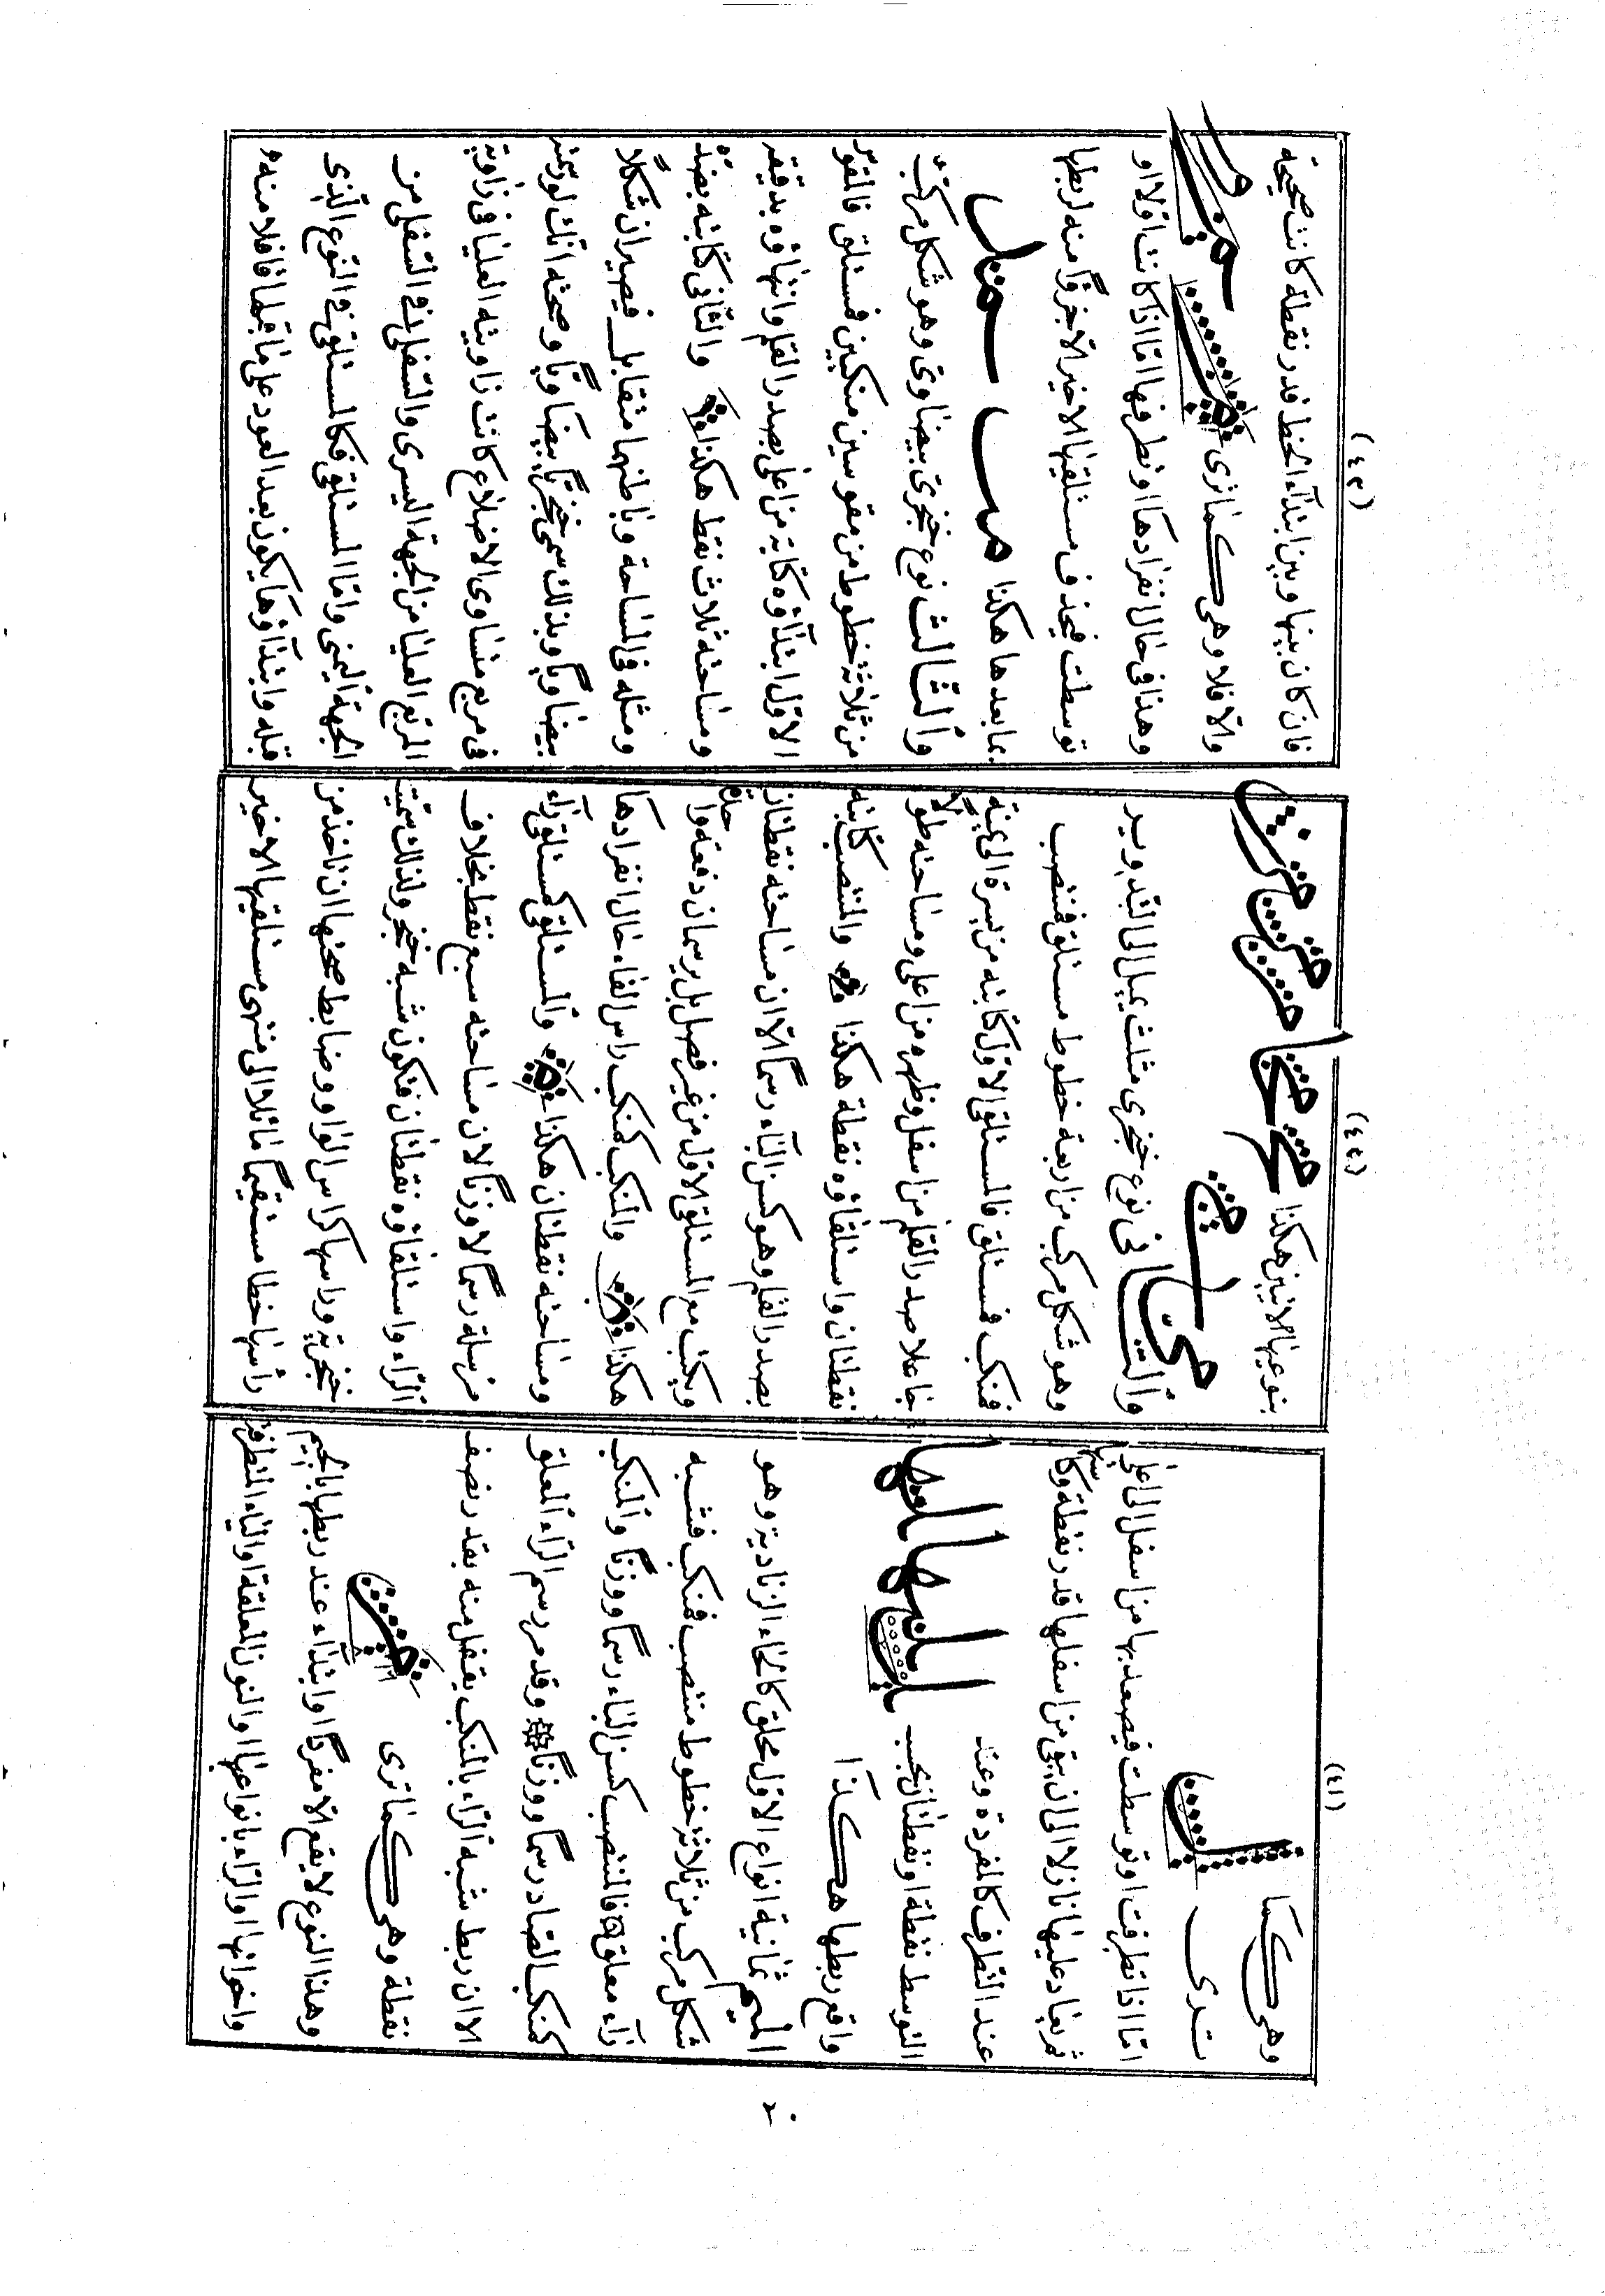 (٤١)
وهى كما
ترى
امّا اذا تطرفت او توسطت فيصعد بها من اسفل الى اعلى
ثم يعاد عليها نازلا الى ان يبقى من اسفلها قدر نقطة
عند التطرف كالمفردة وعند
التوسط نقطة او نقطتان بحسب
واقع ربطها هكذا
الميم ثمانية انواع الاول محلق كالحاء الزنادية وهو
شكل مركب من ثلاثة خطوط منتصب فمنكب فشبه
راء معلق فالمنتصب كسن الباء رسما ووزنا والمنكب
كمنكب الصاد رسما ووزنا وقد مر رسم الراء المعلق
الا ان ربط شبه الراء بالمنكب يقفل منه بقدر نصف
نقطة وهى كما ترى
وهذا النوع لا يقع الا مفردا او ابتداء عند ربطها بالجيم
واخواتها او الراء بانواعها او النون المعلقة او الياء المتطرفة
(٤٤)
بنوعيها الاتيين هكذا
والثانى نوع خنجرى مثلث يميل الى التدوير
وهو شكل مركب من اربعة خطوط مستلق فمنتصب
فمنكب فمستلق فالمستلقى الاول كتابته من يسرة الى يمنة
جاعلا صدر القلم من اسفل وظهره من اعلى ومساحته طولا
نقطتان واستلقاؤه نقطة هكذا والمنتصب كتابته
بصدر القلم وهو كسن الباء رسما الا ان مساحته نقطتان
ويكتب مع المستلقى الاول من غير فصل بل يرسمان دفعة واحدة
هكذا والمنكب كمنكب راس الفاء حال انفرادها
ومساحته نقطتان هكذا والمستلقى كمستلقى راء
مرسلة رسما لا وزنا لان مساحته سبع نقط بخلاف
الراء واستلقاؤه نقطتان فتكون شبه خنجر ولذلك سميت
خنجرية وراسها كراس الواو وضابط صحتها ان تاخذ من
رأسها خطا مستقيما مائلا الى منتهى مستلقيها الاخير
(٤٣)
فان كان بينها وبين ابتداء الخط قدر نقطة كانت صحيحة
والا فلا وهى كما ترى
وهذا فى حال انفرادها او تطرفها امّا اذا كانت اولا او
توسطت فيحذف مستلقيها الاخير الا جزؤا منه لربطها
بما بعدها هكذا
والثالث نوع خنجرى بيضاوى وهو شكل مركب
من ثلاثة خطوط من مقوسين منكبين فمستلق فالمقوس
الاول ابتداؤه كتابة من اعلى بصدر القلم وانتهاؤه بدقيقه
ومساحته ثلاث نقط هكذا والثانى كتابته بضده
ومثله فى المساحة وباطنهما متقابل فيصيران شكلا
بيضاويا وبذلك سمى خنجريا بيضاويا وصحته انك لو رسمته
فى مربع متساوى الاضلاع كانت زاويته العليا فى زاوية
المربع العليا من الجهة اليسرى والسفلى فى السفلى من
الجهة اليمنى وامّا المستلقى فكالمستلقى فى النوع الذى
قبله وابتداؤها يكون بعد العود على ما قبلها قافلا منه
٢٠